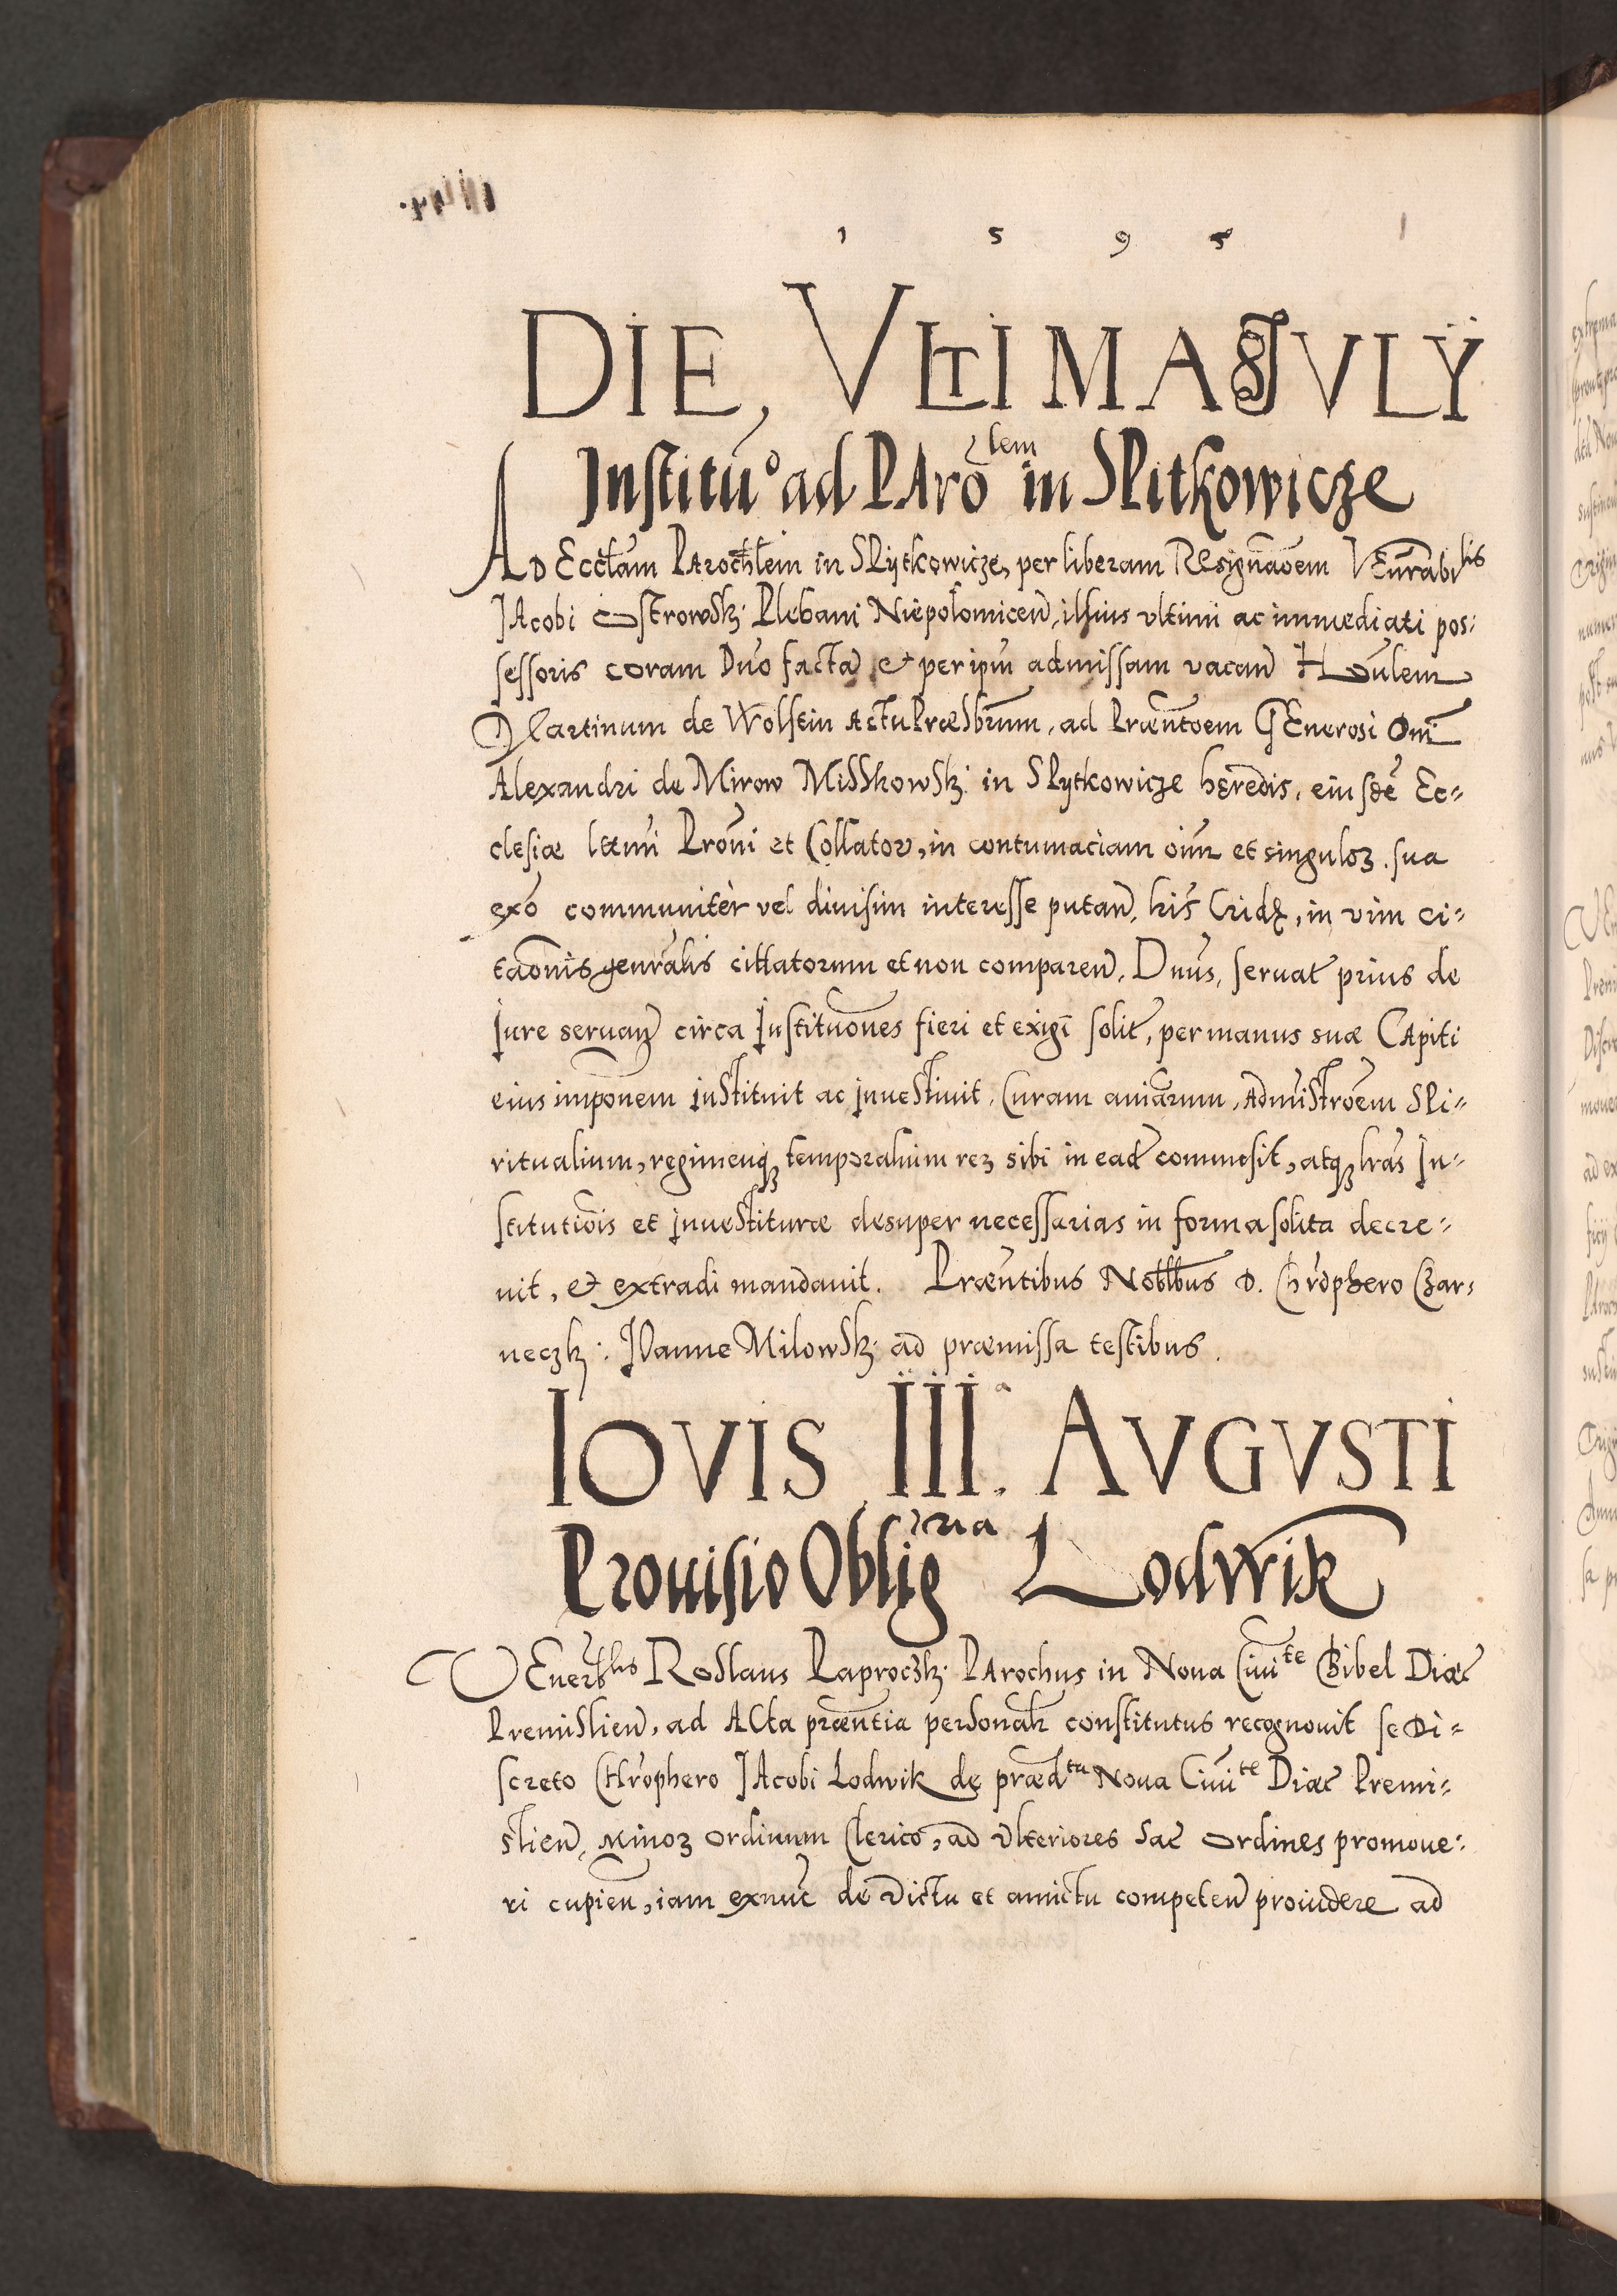 1 5 9 5
DIE, VLTIMA JVLŸ
Institũo ad PArolẽm in SPitkowicze
AD Ecclãm PArochlẽm in SPytkowicze, per liberam REsignãoem VEnrabilis
JAcobi Ostrowsk: Plebani Niepolomiceñ, illius vltimi ac immediati pos:
sessoris coram Dño factã & per ipm̃ admissam vacañ HOñlem
Martinum de Wolstin ActuPræsbrũm, ad Præñtoem GEnerosi Dñi
Alexandri de Mirow MisSkowSk: in SPytkowicze hæredis, eiusdẽ Ec-
clesiæ lttmi Prõni et Collator, in contumaciam oim̃ et singuloꝝ sua
exõ communitèr vel diuisim interesse putañ, lris Cridę, in vim ci-
taõnis genrãlis citlatorum et non compareñ. Dñus, seruat̃ prius de
Jure seruañ circa Jnstituõnes fieri et exigi solit̃, per manus suæ CApiti
eius impõnem jnStituit ac jnueStiuit, Curam aniãrum, AdmiStrõem SPi-
ritualium, regimenqꝫ temporalium reꝝ sibi in eadẽ commisit, atqꝫ lrãs Jn-
stitutiõis et jnueStituræ desuper necessarias in forma solita decre-
uit, & extradi mandauit. Præñtibus Nobllbus D. Chrõphero Czar-
neczk: JOanne MilowSk: ad præmissa testibus.
IOVIS III.ª AVGVSTI
Prouisio Obligria Lodwik
VEnerblis RoSlaus Paproczk: PArochus in Noua Ciuite Bibel Diæc̃
PremiSlieñ, ad ACta præñtia perSonalr̃ constitutus recognouit se Di-
screto CHrõphero JAcobi Lodwik de prædta Noua Ciuite Diæc̃ Premi-
slieñ, Minoꝝ ordinum Clerico, ad vlteriores Sac̃ ordines promoue-
ri cupieñ, iam exnũc de victu et amictu competeñ prouidere ad